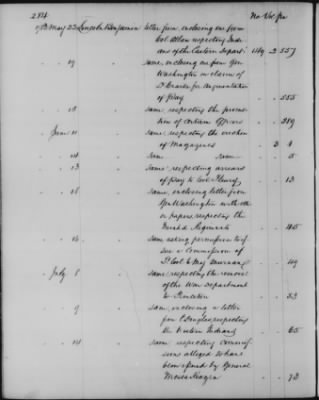 284 No Vol pa
1783 May 23 Lincoln Benjamin letter from, enclosing one from
Col Allan respecting Indi-
ans of the Eastern Depart: 149 2 557
" 19 " same, enclosing one from Gen
Washington on claim of
Dr Craik for augmentation
of Pay " " 555
" 15 " same, respecting the promo-
tion of certain Officers " " 319
June 11 " same, respecting the erection
of Magazines " 3 1
" 14 " Same same " " 5
" 13 " same, respecting arrears
of pay to Col: Fleury " " 13
" 18 " same, enclosing letter from
Gen Washington with other
papers, respecting the
Regiments " " 45
" 16 " same asking permission to is-
sue a Commission of
Lt Col to Maj Murnan " " 49
July 8 " same, respecting the removal
of the War Department
to Princeton " " 53
" 9 " same, enclosing a letter
from E Douglas respecting
the Western Indians " " 65
" 14 " same, respecting commis-
sions alleged to have
been issued by General
Moses Hazen " " 73